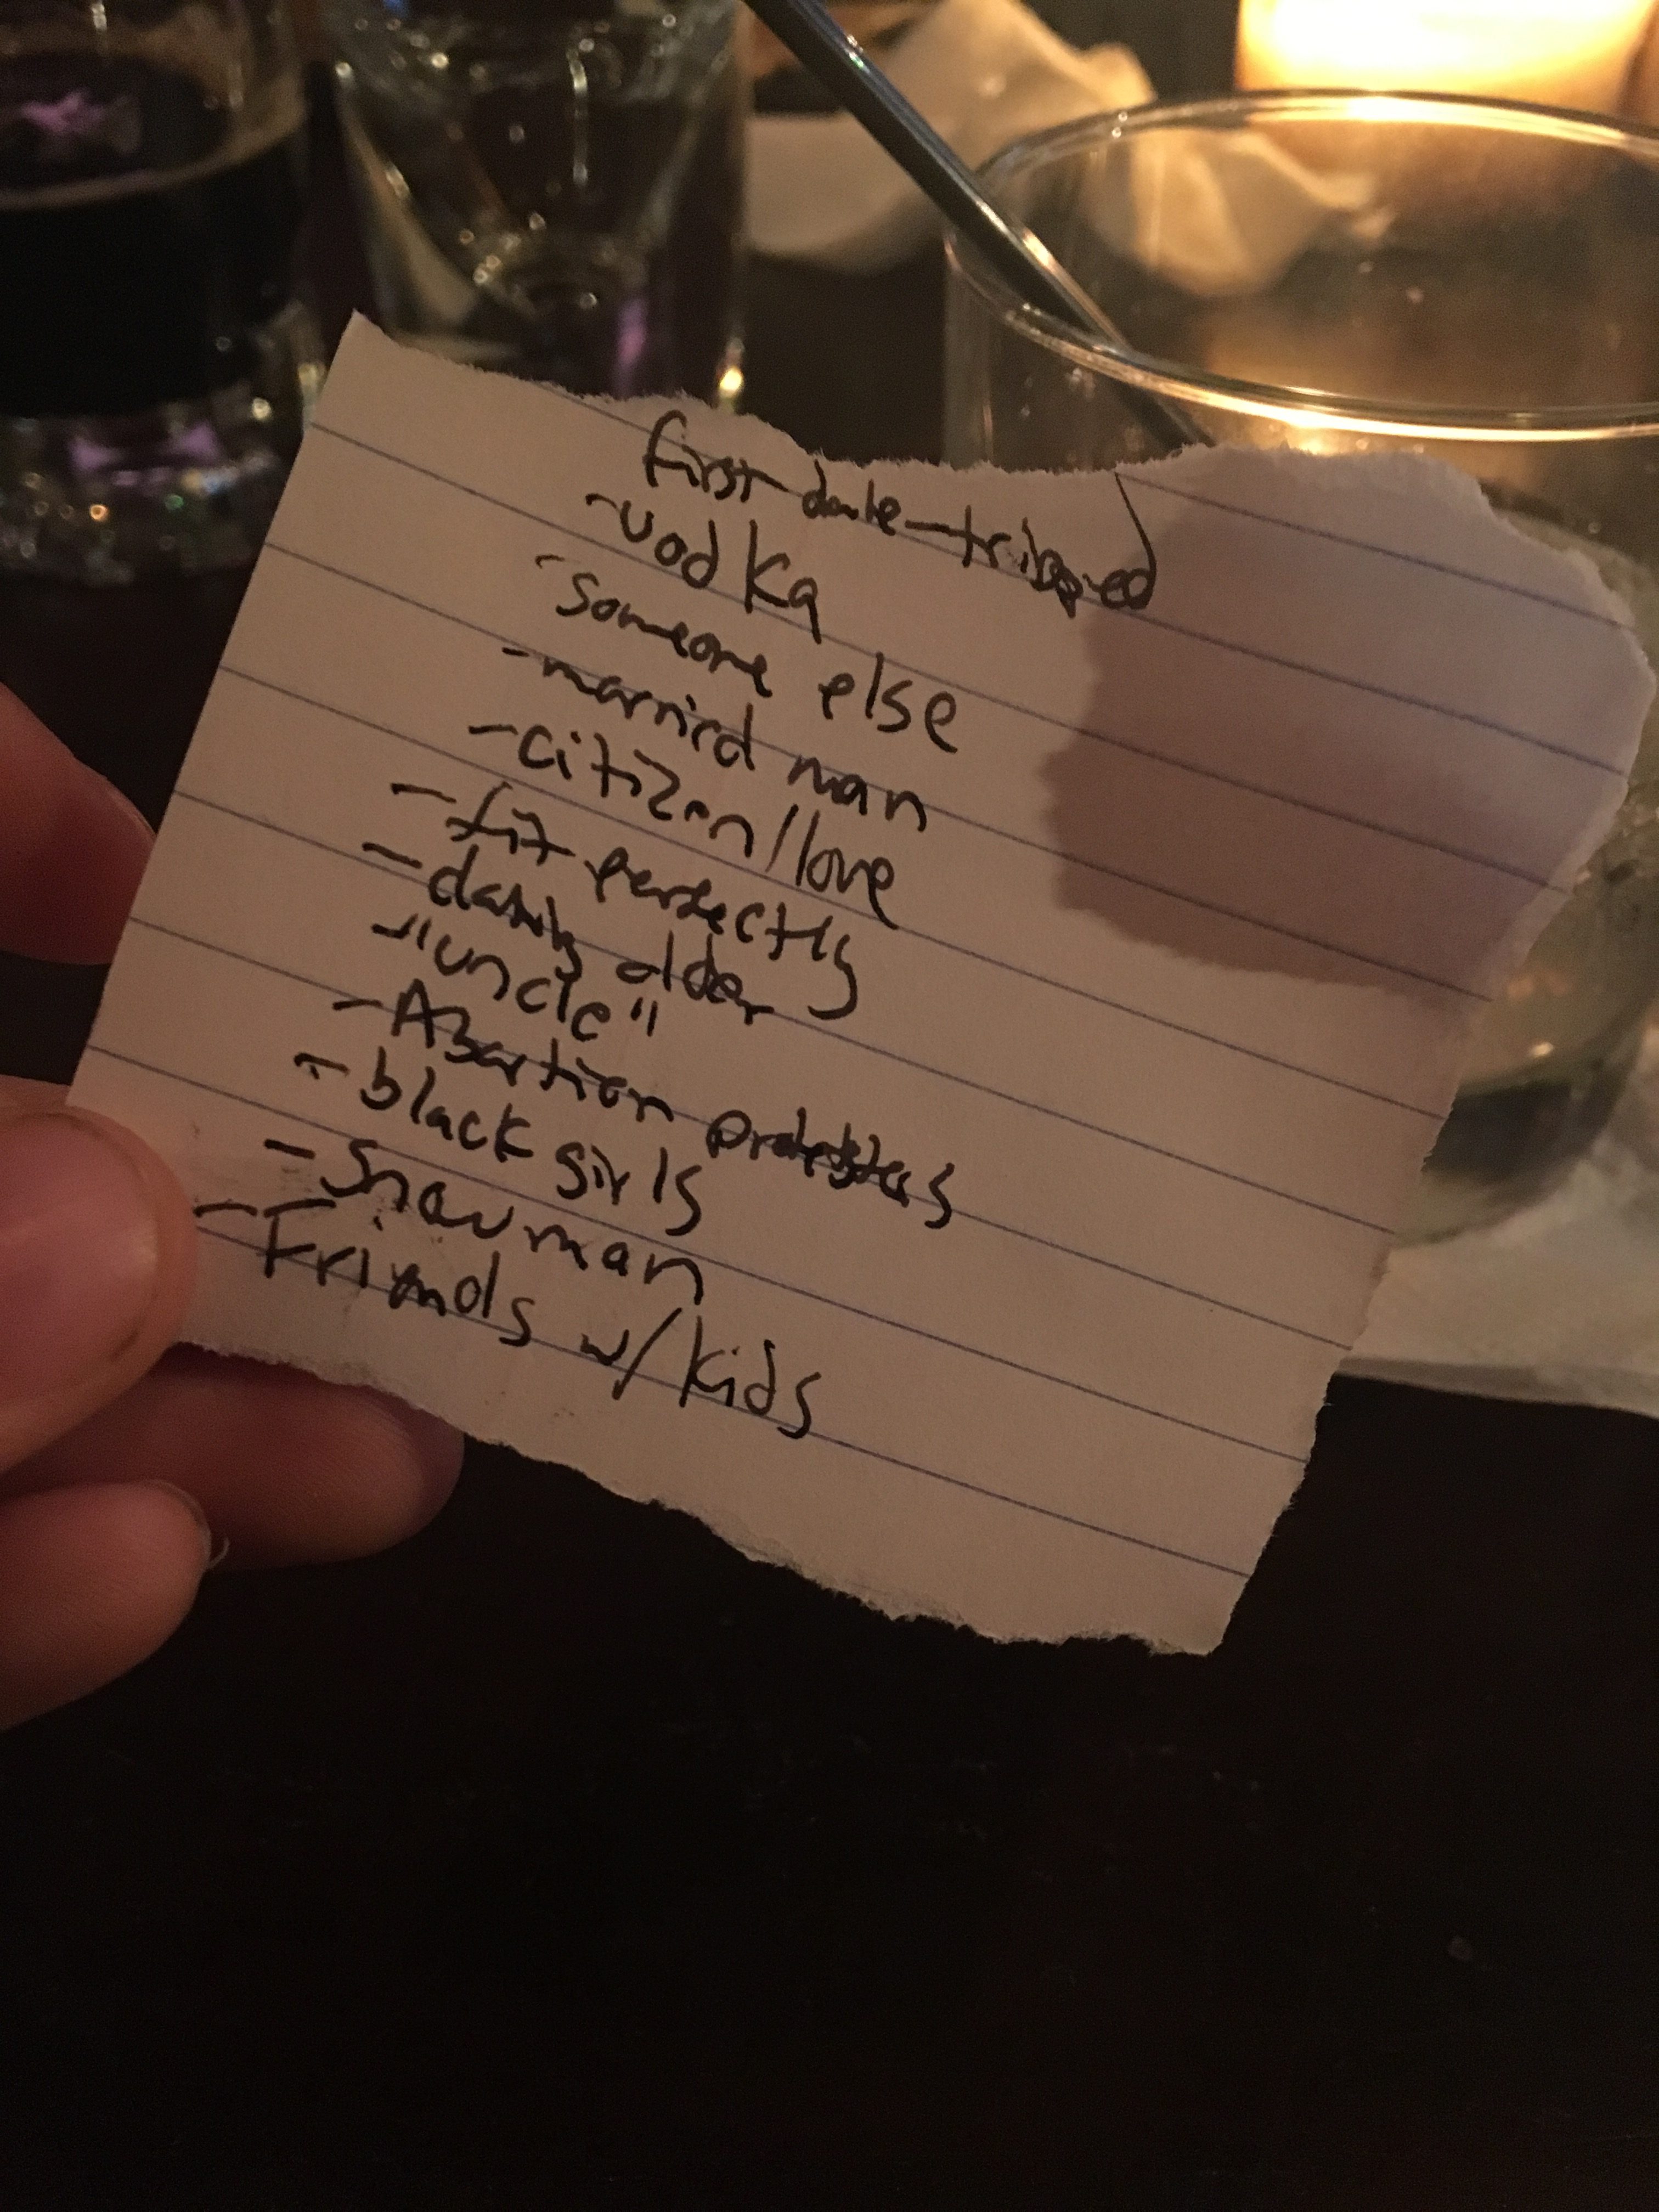 first date-tripped
-vodka
-someone else
-married man
-citizen/love
-fit perfectly
-dating older
-"uncle"
-Abortion protesters
-black girls
-Snowman
-Friends w/kids